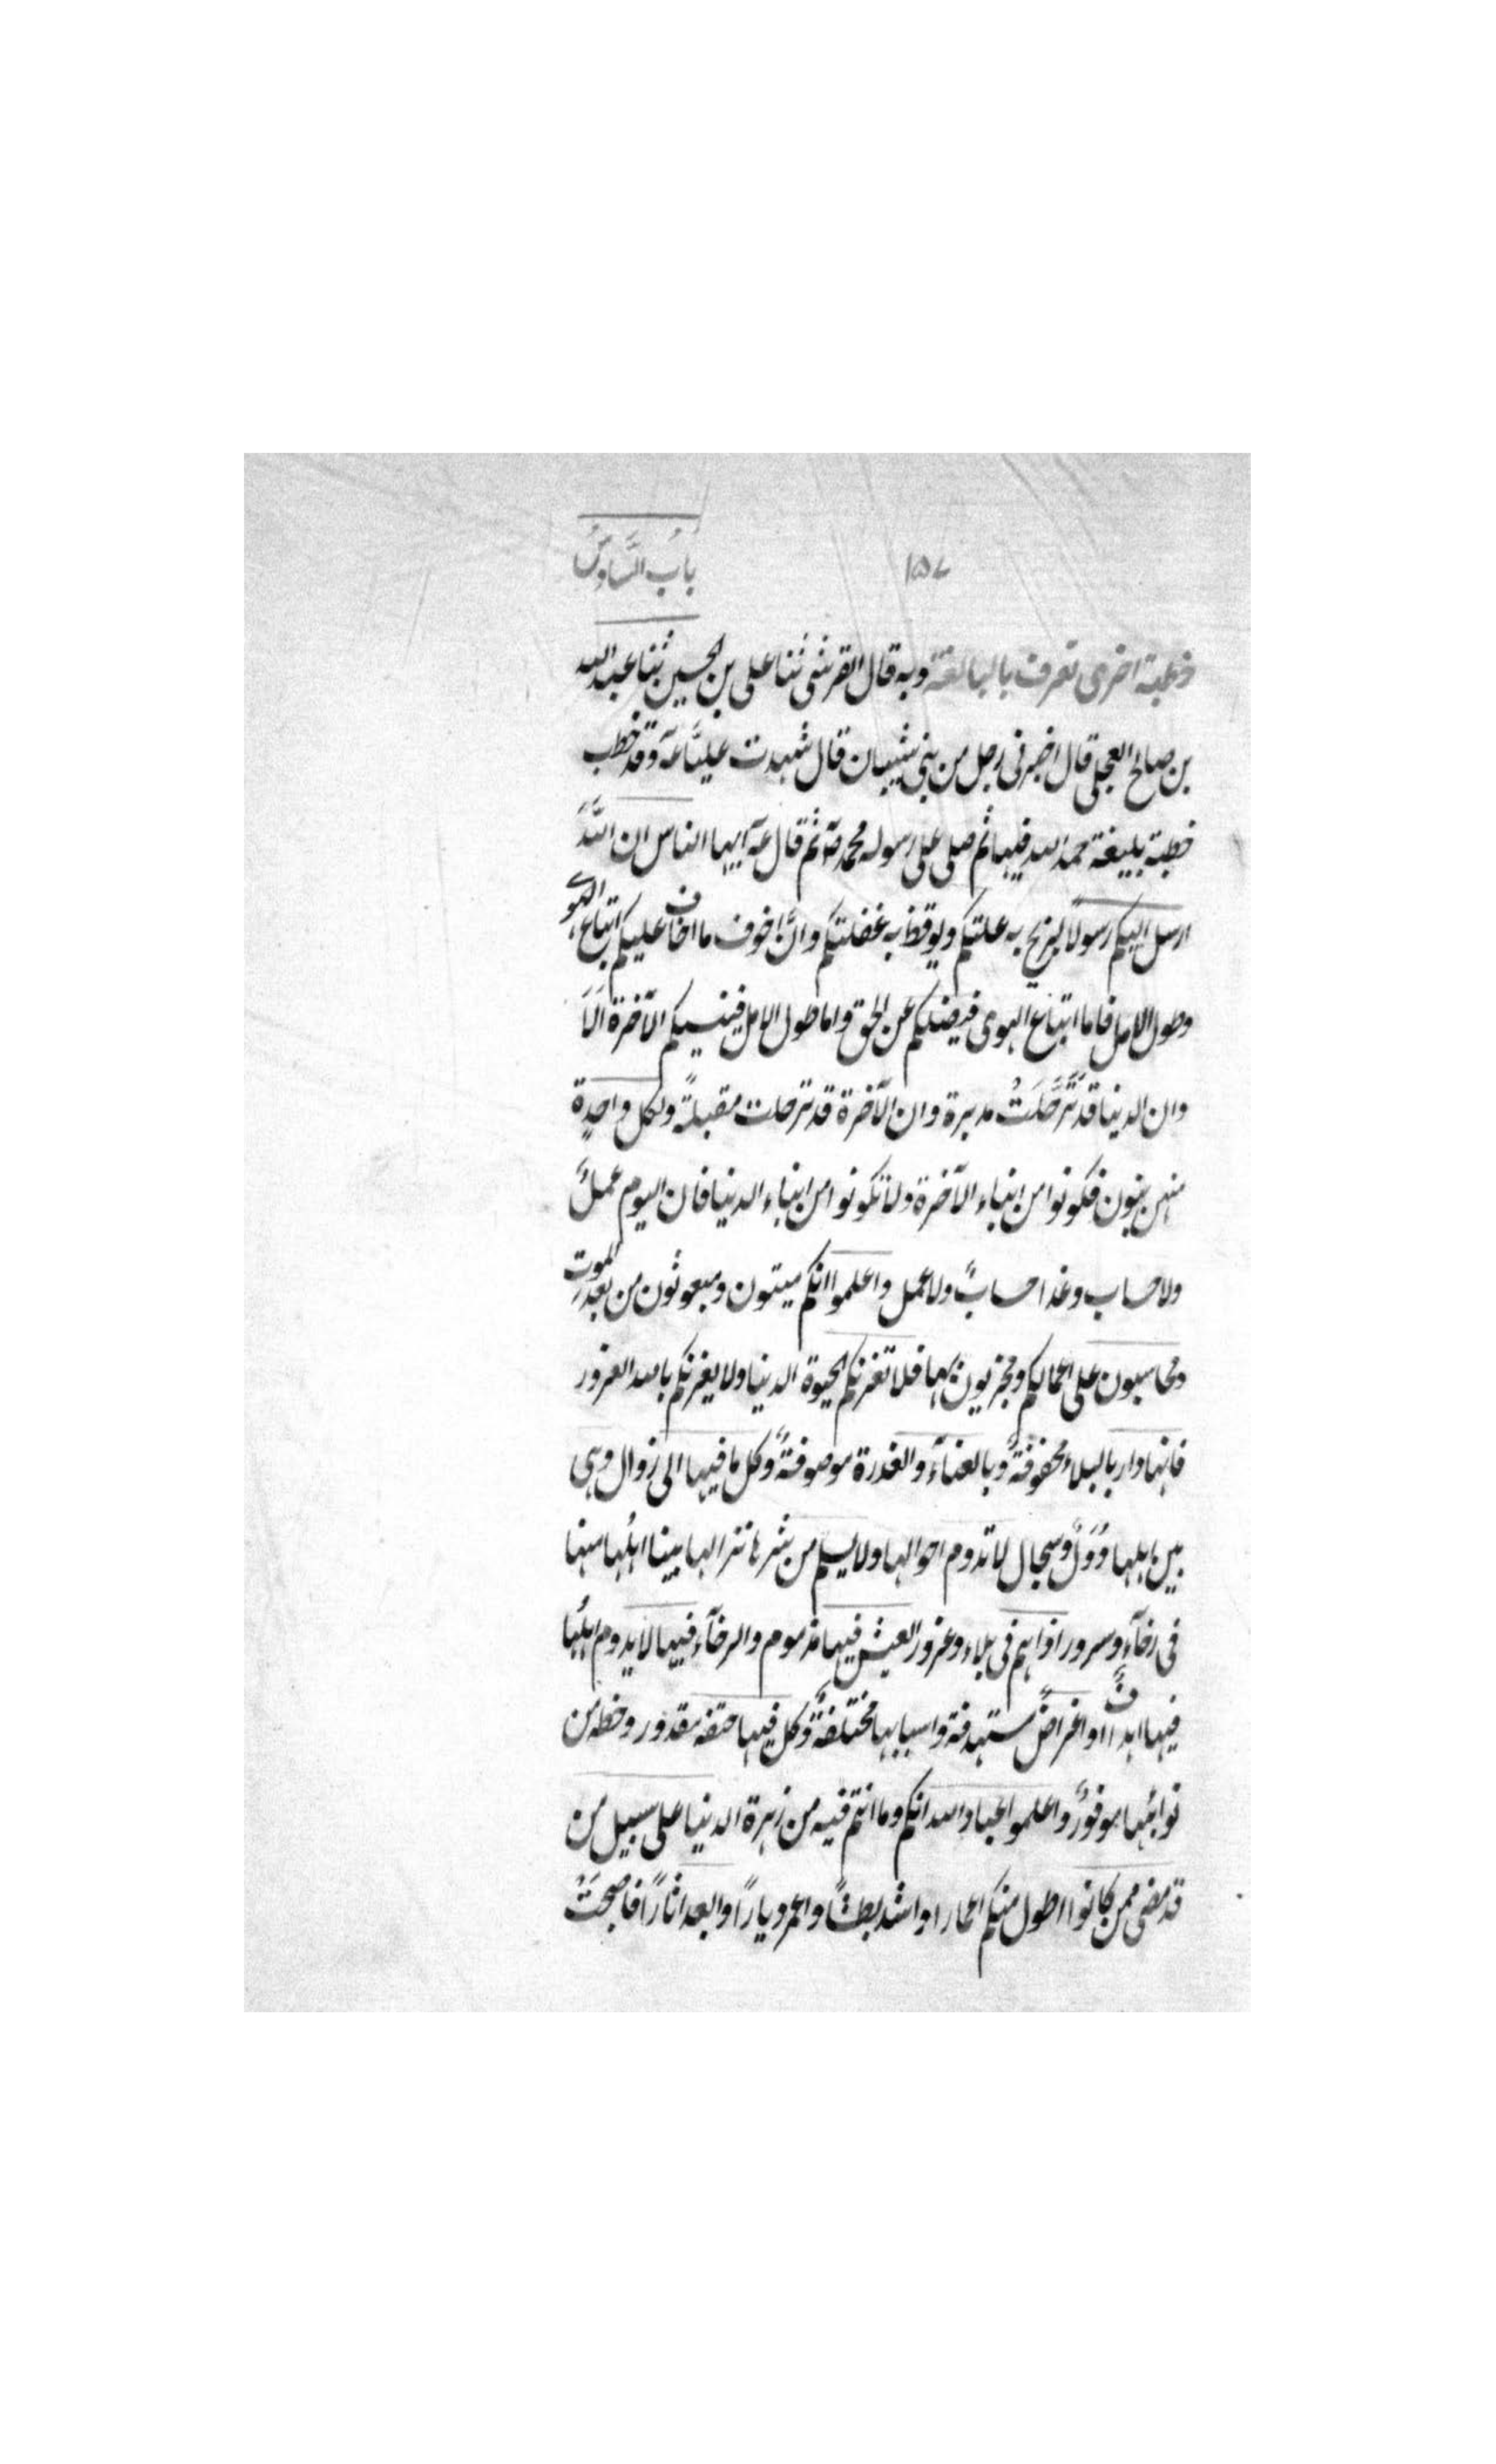 ۱۵۷
باب السَّادس
خطبة اخرى تعرف بالبالغة وبه قال القرشى ثنا على بن الحسين ثنا عبد الله
بن صالح العجلى قال اخبرنى رجل من بنى شيبان قال شهدت عليًّا عۤ وقد خطب
خطبة بليغة حمد الله فيها ثم صلى على رسوله محمد صۤ ثم قال عۤ ايها الناس ان اللّٰه
ارسل اليكم رسولًا ليزيح به علتكم ويوقظ به غفلتكم وانَّ اخوف ما اخاف عليكم اتباع الهوى
وطول الامل فاما اتباع الهوى فيضلكم عن الحق واما طول الامل فينسيكم الآخرة اَلَا
وان الدنيا قد تَرَحَّلَتْ مدبرة وان الآخرة قد ترحلت مقبلةً ولكل واحدة
منهن بنون فكونوا من ابناء الآخرة ولا تكونوا من ابناء الدنيا فان اليوم عملٌ
ولا حساب وغدا حسابٌ ولا عمل واعلموا انكم ميتون ومبعوثون من بعد الموت
ومحاسبون على اعمالكم ومجزيون بها فلا تغرنكم الحيوة الدنيا ولا يغرنكم بالله الغرور
فانها دار بالبلاء محفوفةٌ وبالعنآء والغدرة موصوفةٌ وكل ما فيها الى زوال وهى
بين اهلها دُوَلٌ وسجال لا تدوم احوالها ولا يسلم من شرها نزالها بينا اهلُها منها
فى رخآءٍ وسرور اذا هم فى بلاء وغرور العيش فيها مذموم والرخآء فيها لا يدوم اهلُها
فيها اهدافٌ او اغراضٌ مستهدفة واسبابها مختلفةٌ وكل فيها حتفه مقدور وحظه من
نوائبها موفورٌ واعلموا عباد الله انكم وما انتم فيه من زهرة الدنيا على سبيل من
قد مضى ممن كانوا اطول منكم اعمارا واشد بطشًا واعمر ديارًا وابعد اثارًا فاصبحَتْ